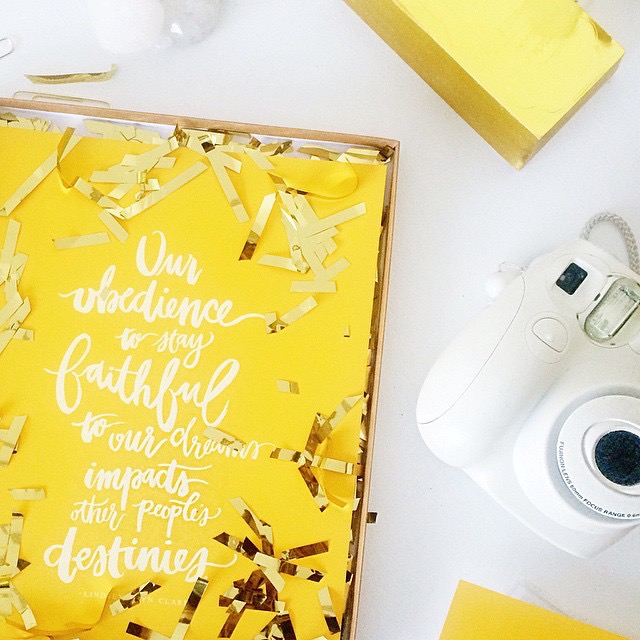 Our
obedience
to stay
faithful
to our dreams
impacts
other peoples
destinies
FUJINON LENS 60mm FOCUS RANGE 0.6m